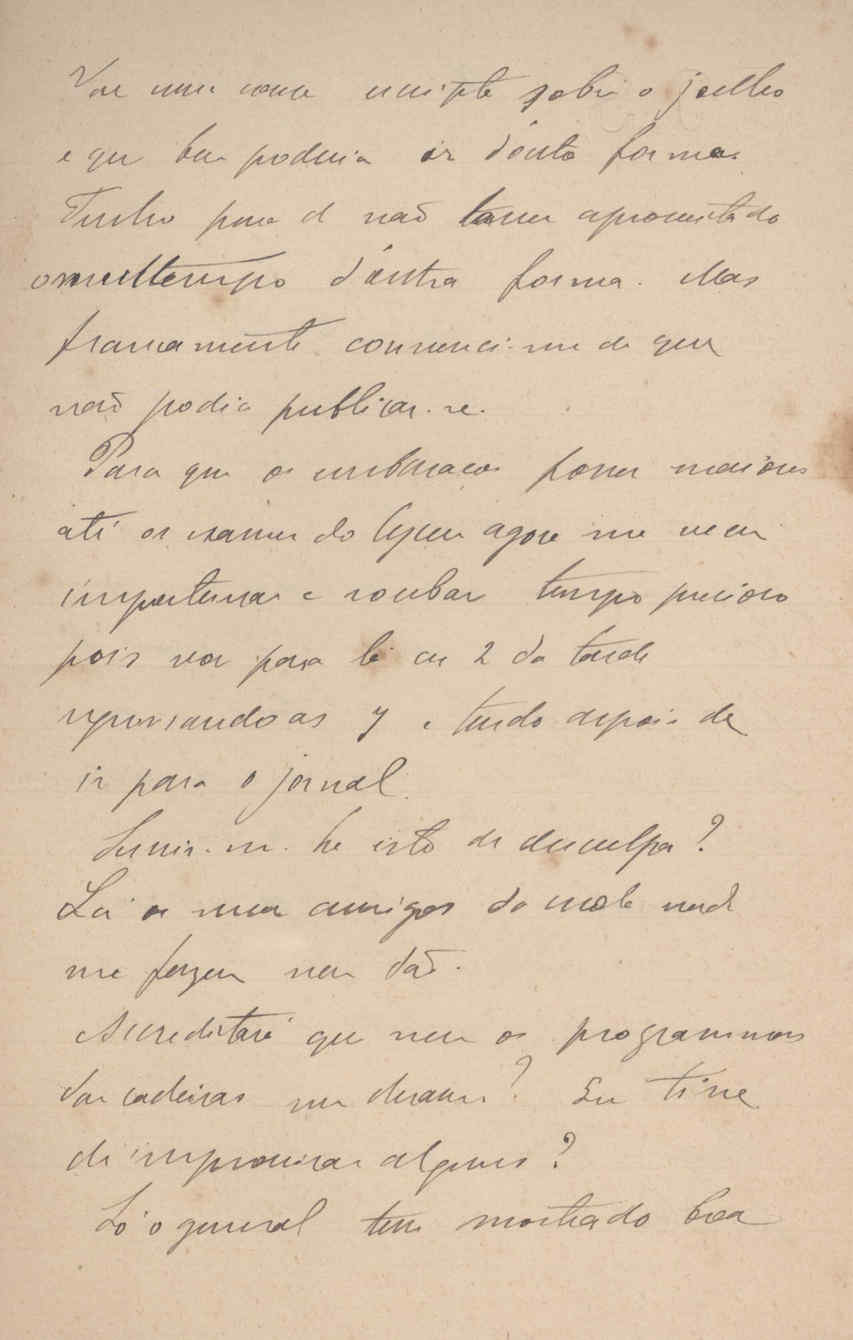 Vae uma cousa escripta sobre o joelho
e que bem poderia ir d'outra forma.
Tenho pena de não haver aproveitado
o meu tempo d'outra forma. Mas
francamente convenci-me de que
não podia publicar-se.
Para que os embaraços fossem maiores
até os exames do lyceu agora me veem
importunar e roubar tempo precioso
pois vou para lá as 2 da tarde
regressando as 7 e tendo depois de
ir para o jornal.
Servir-me-ha isto de desculpa?
Lá os meus amigos da escola nada
me fazem nem dão.
Acreditará que nem os programmas
das cadeiras me deram? Eu tive
de improvisar alguns?
Só o general tem mostrado boa